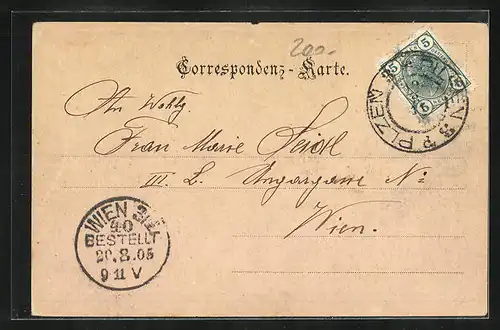 200.-
Correspondenz-Karte.
An Wohlg.
Frau Marie Seidl
III. L. Ungargasse No
Wien.
5 5
5
PILSEN 3 PLZEŇ 3
WIEN 3/1
40
BESTELLT
20.8.05
9 11 V